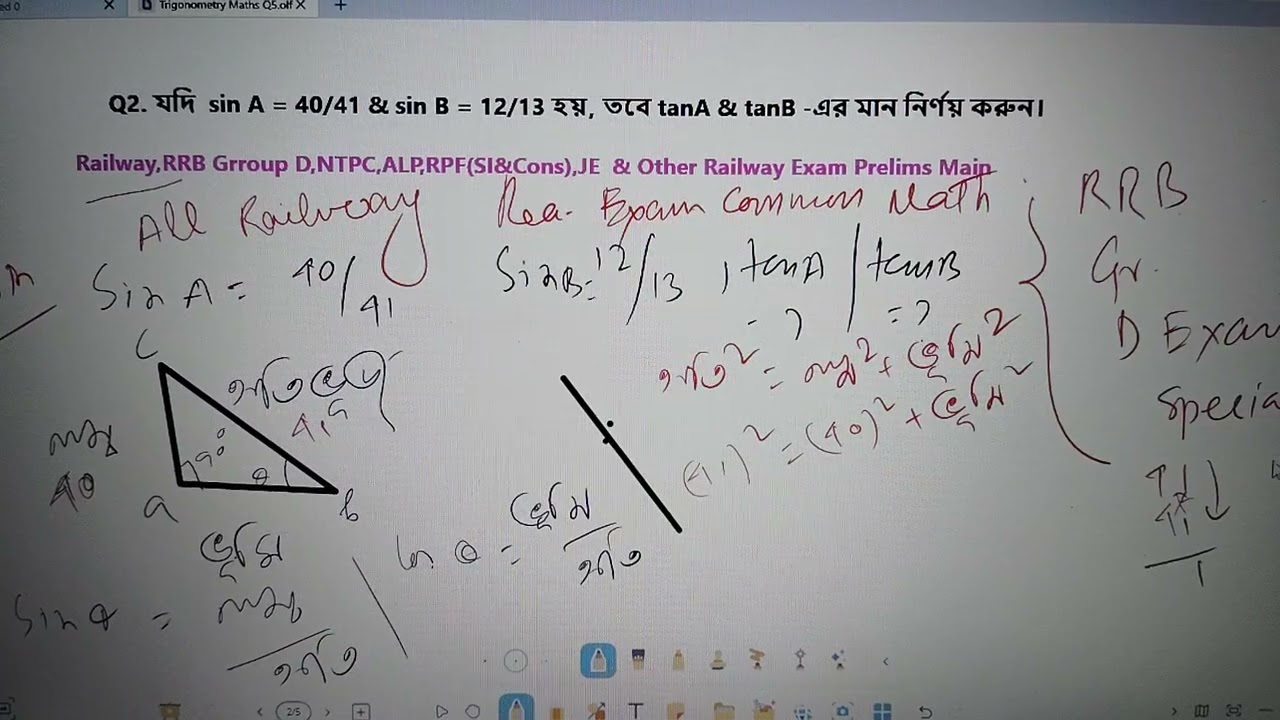 Trigonometry Maths Q5.olf
Q2. যদি sin A = 40/41 & sin B = 12/13 হয়, তবে tanA & tanB -এর মান নির্ণয় করুন।
Railway,RRB Grroup D,NTPC,ALP,RPF(SI&Cons),JE & Other Railway Exam Prelims Main
All Railway Rea. Exam Common Math RRB
Sin A = 40/41 Sin B = 12/13 , tanA / tanB Gr.
= ? = ? D Exam
C অতিভুজ অতি² = লম্ব² + ভূমি² Specia
লম্ব 41 (41)² = (40)² + ভূমি²
40 90° θ
a b 41
ভূমি ভূমি 41
Sin θ = লম্ব/অতি θ = ভূমি/অতি 1
2/5